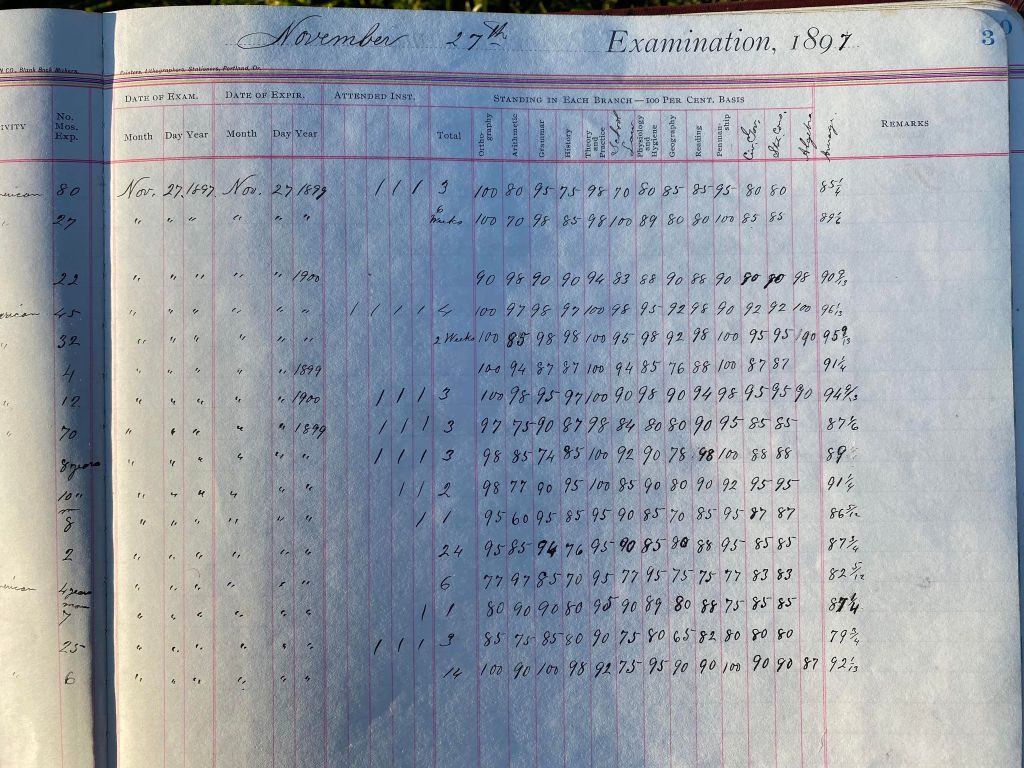 November 27th Examination, 1897
30
N CO., Blank Book Makers, Printers, Lithographers, Stationers, Portland, Or.
IVITY No. Mos. Exp. DATE OF EXAM. DATE OF EXPIR. ATTENDED INST. STANDING IN EACH BRANCH—100 PER CENT. BASIS REMARKS
Month Day Year Month Day Year Total Orthography Arithmetic Grammar History Theory and Practice School Law Physiology and Hygiene Geography Reading Penmanship Algebra
80 Nov. 27 1897 Nov. 27 1899 / / / 3 100 80 95 75 98 70 80 85 85 95 80 80 85 1/4
" 27 " " " " " " 6 Weeks 100 70 98 85 98 100 89 80 80 100 85 85 89 1/6
22 " " " " " 1900 90 98 90 90 94 83 88 90 88 90 80 80 98 90 9/13
45 " " " " " " / / / / 4 100 97 98 97 100 98 95 92 98 90 92 92 100 96 1/13
" 32 " " " " " " 2 Weeks 100 85 98 98 100 95 98 92 98 100 95 95 90 95 9/13
4 " " " " " 1899 100 94 87 87 100 94 85 76 88 100 87 87 91 1/4
" 12 " " " " " 1900 / / / 3 100 98 95 97 100 90 98 90 94 98 95 95 90 94
" 70 " " " " " 1899 / / / 3 97 75 90 87 98 84 80 80 90 95 85 85 87 1/6
8 years " " " " " " / / / 3 98 85 74 85 100 92 90 78 98 100 88 88 89
10 " " " " " " " / / 2 98 77 90 95 100 85 90 80 90 92 95 95 91 1/4
8 " " " " " " / 1 95 60 95 85 95 90 85 70 85 95 87 87 86
2 " " " " " " 24 95 85 94 76 95 90 85 80 88 95 85 85 87 3/4
4 years " " " " " " 6 77 97 85 70 95 77 95 75 75 77 83 83 82 5/12
7 " " " " " " / 1 80 90 90 80 95 90 89 80 88 75 85 85
25 " " " " " " / / / 3 85 75 85 80 90 75 80 65 82 80 80 80 79 3/4
" 6 " " " " " " 14 100 90 100 98 92 75 95 90 90 100 90 90 87 92 1/13